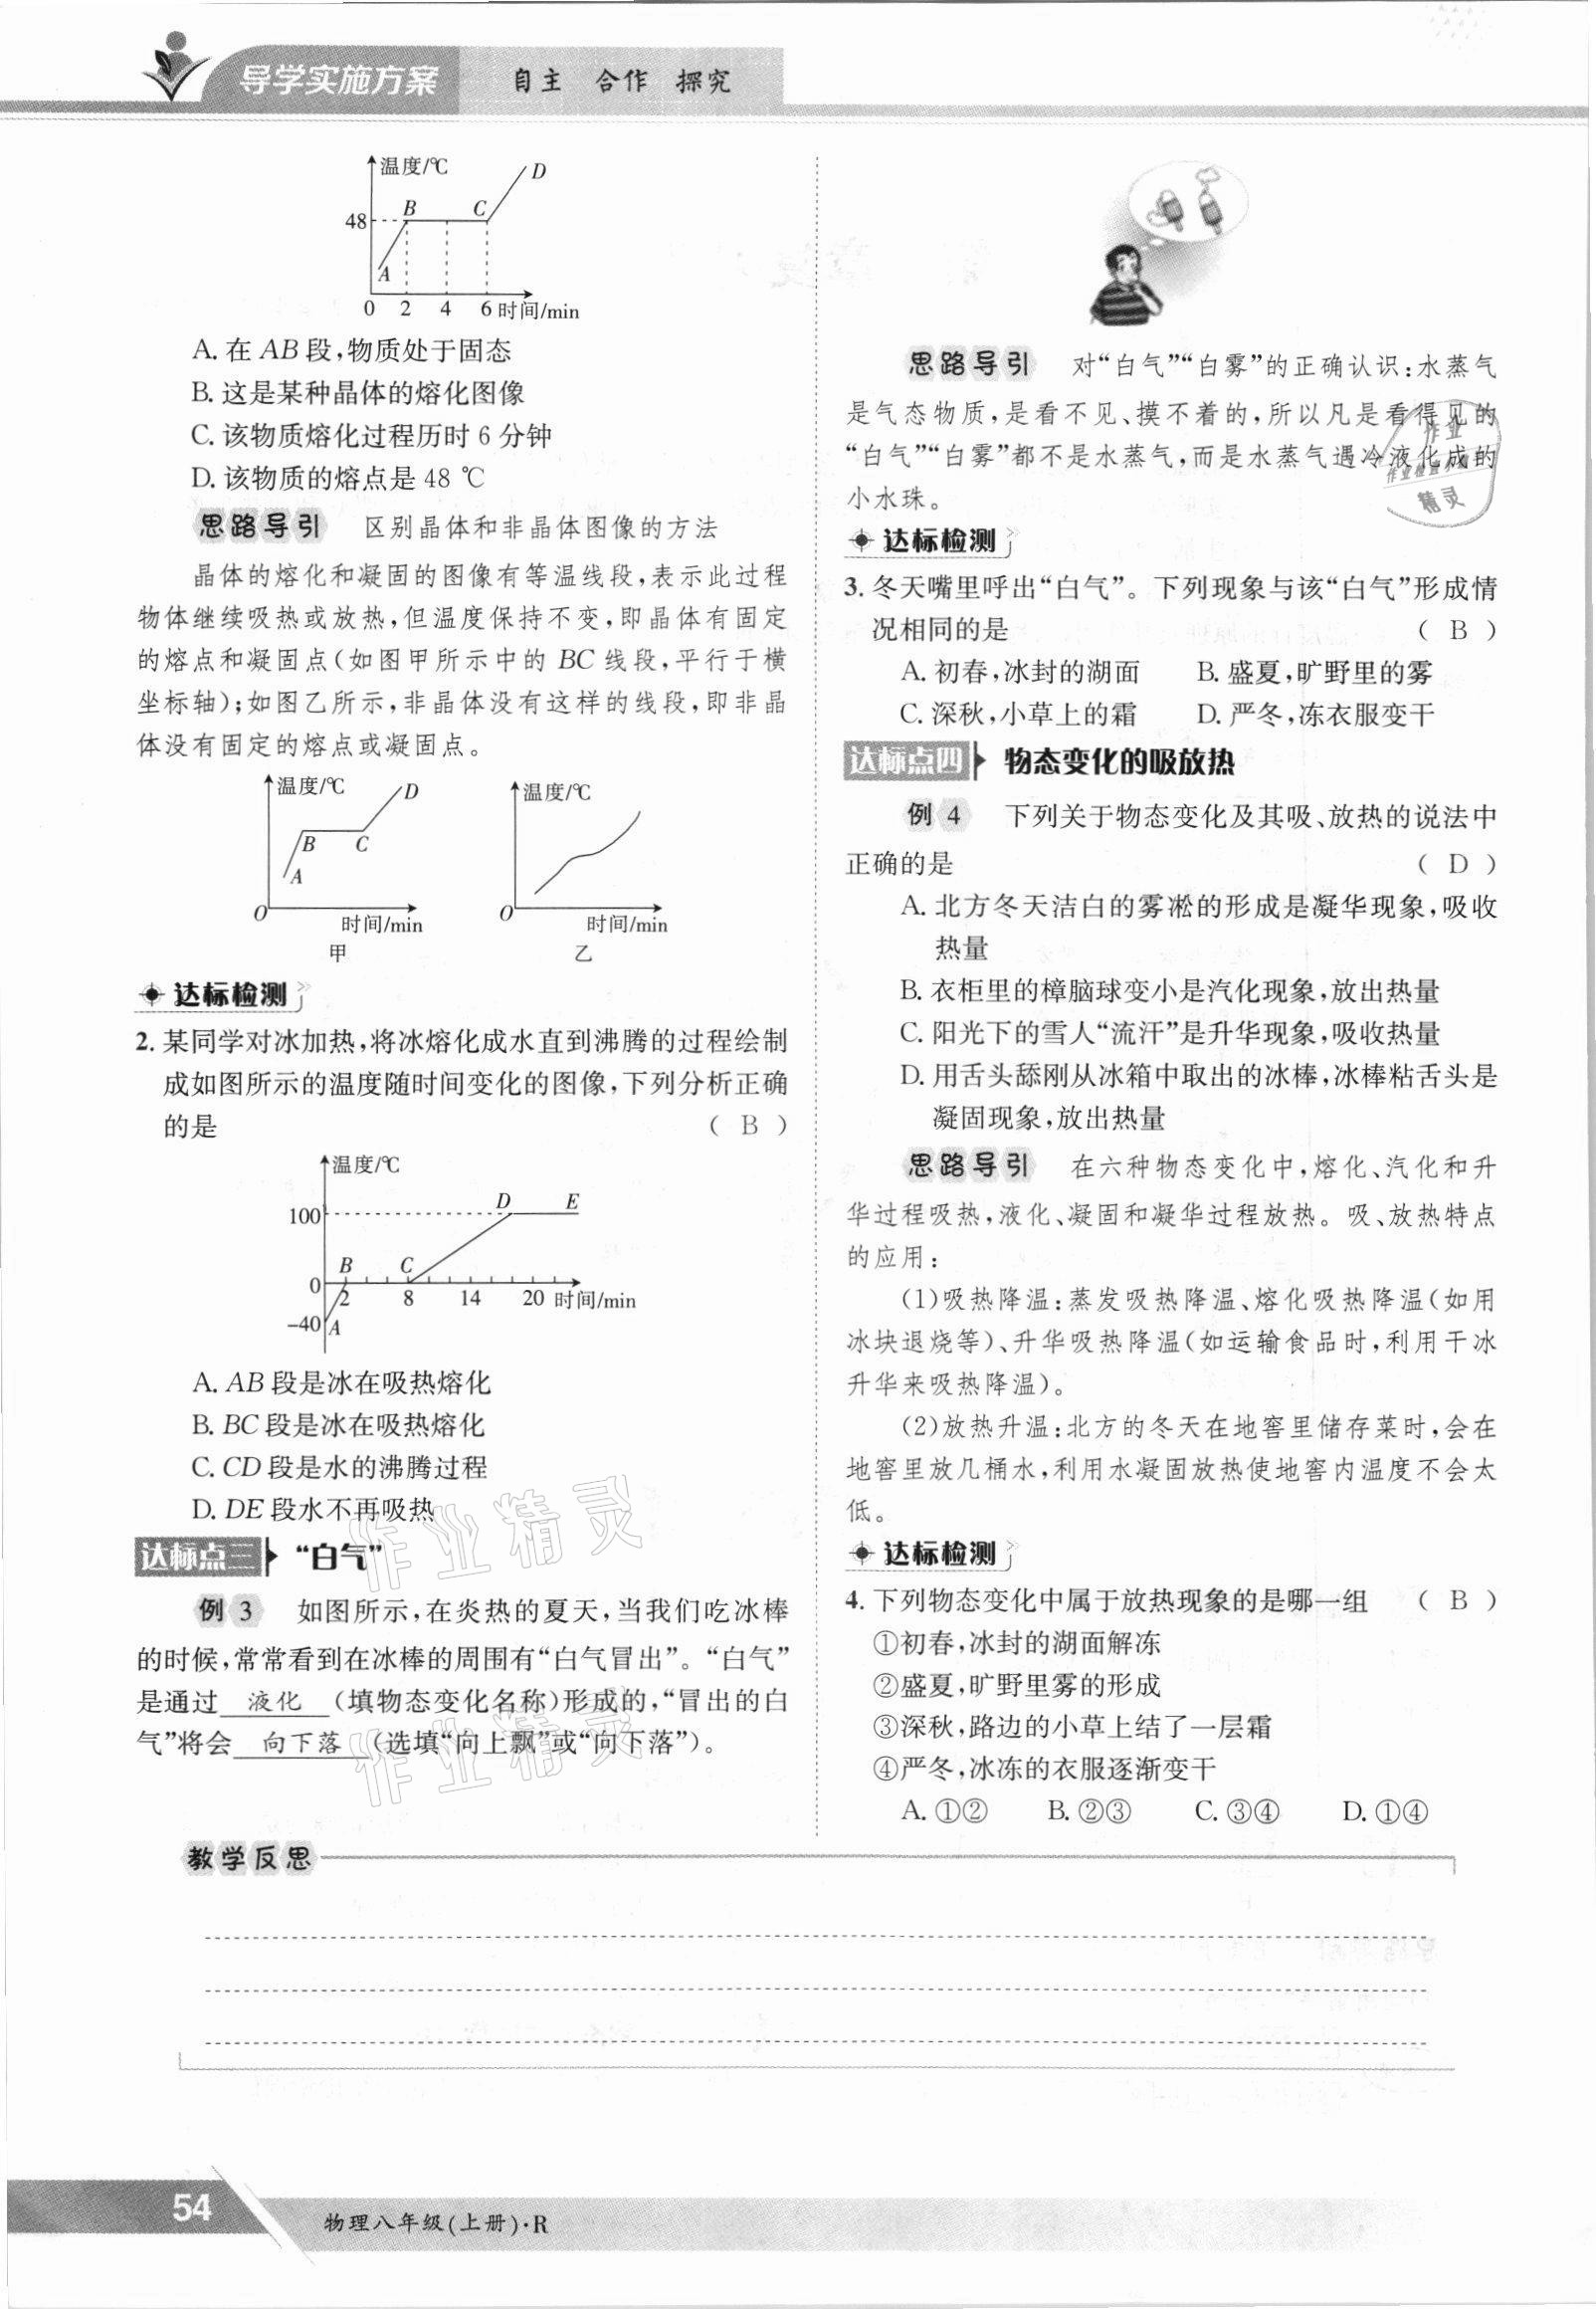 导学实施方案
自主 合作 探究
温度/℃
D
B
C
48
A
0 2 4 6 时间/min
A. 在 AB 段,物质处于固态
B. 这是某种晶体的熔化图像
C. 该物质熔化过程历时 6 分钟
D. 该物质的熔点是 48 ℃
思路导引 区别晶体和非晶体图像的方法
晶体的熔化和凝固的图像有等温线段,表示此过程
物体继续吸热或放热,但温度保持不变,即晶体有固定
的熔点和凝固点(如图甲所示中的 BC 线段,平行于横
坐标轴);如图乙所示,非晶体没有这样的线段,即非晶
体没有固定的熔点或凝固点。
温度/℃
D
B C
A
O
时间/min
甲
温度/℃
O
时间/min
乙
达标检测
2. 某同学对冰加热,将冰熔化成水直到沸腾的过程绘制
成如图所示的温度随时间变化的图像,下列分析正确
的是 ( B )
温度/℃
D E
100
B C
0
2 8 14 20 时间/min
-40 A
A. AB 段是冰在吸热熔化
B. BC 段是冰在吸热熔化
C. CD 段是水的沸腾过程
D. DE 段水不再吸热
达标点三 “白气”
例 3 如图所示,在炎热的夏天,当我们吃冰棒
的时候,常常看到在冰棒的周围有“白气冒出”。“白气”
是通过 液化 (填物态变化名称)形成的,“冒出的白
气”将会 向下落 (选填“向上飘”或“向下落”)。
思路导引 对“白气”“白雾”的正确认识:水蒸气
是气态物质,是看不见、摸不着的,所以凡是看得见的
“白气”“白雾”都不是水蒸气,而是水蒸气遇冷液化成的
小水珠。
作业
精灵
达标检测
3. 冬天嘴里呼出“白气”。下列现象与该“白气”形成情
况相同的是 ( B )
A. 初春,冰封的湖面 B. 盛夏,旷野里的雾
C. 深秋,小草上的霜 D. 严冬,冻衣服变干
达标点四 物态变化的吸放热
例 4 下列关于物态变化及其吸、放热的说法中
正确的是 ( D )
A. 北方冬天洁白的雾凇的形成是凝华现象,吸收
热量
B. 衣柜里的樟脑球变小是汽化现象,放出热量
C. 阳光下的雪人“流汗”是升华现象,吸收热量
D. 用舌头舔刚从冰箱中取出的冰棒,冰棒粘舌头是
凝固现象,放出热量
思路导引 在六种物态变化中,熔化、汽化和升
华过程吸热,液化、凝固和凝华过程放热。吸、放热特点
的应用:
(1)吸热降温:蒸发吸热降温、熔化吸热降温(如用
冰块退烧等)、升华吸热降温(如运输食品时,利用干冰
升华来吸热降温)。
(2)放热升温:北方的冬天在地窖里储存菜时,会在
地窖里放几桶水,利用水凝固放热使地窖内温度不会太
低。
达标检测
4. 下列物态变化中属于放热现象的是哪一组 ( B )
①初春,冰封的湖面解冻
②盛夏,旷野里雾的形成
③深秋,路边的小草上结了一层霜
④严冬,冰冻的衣服逐渐变干
A. ①② B. ②③ C. ③④ D. ①④
作业精灵
作业精灵
教学反思
54
物理八年级(上册)·R